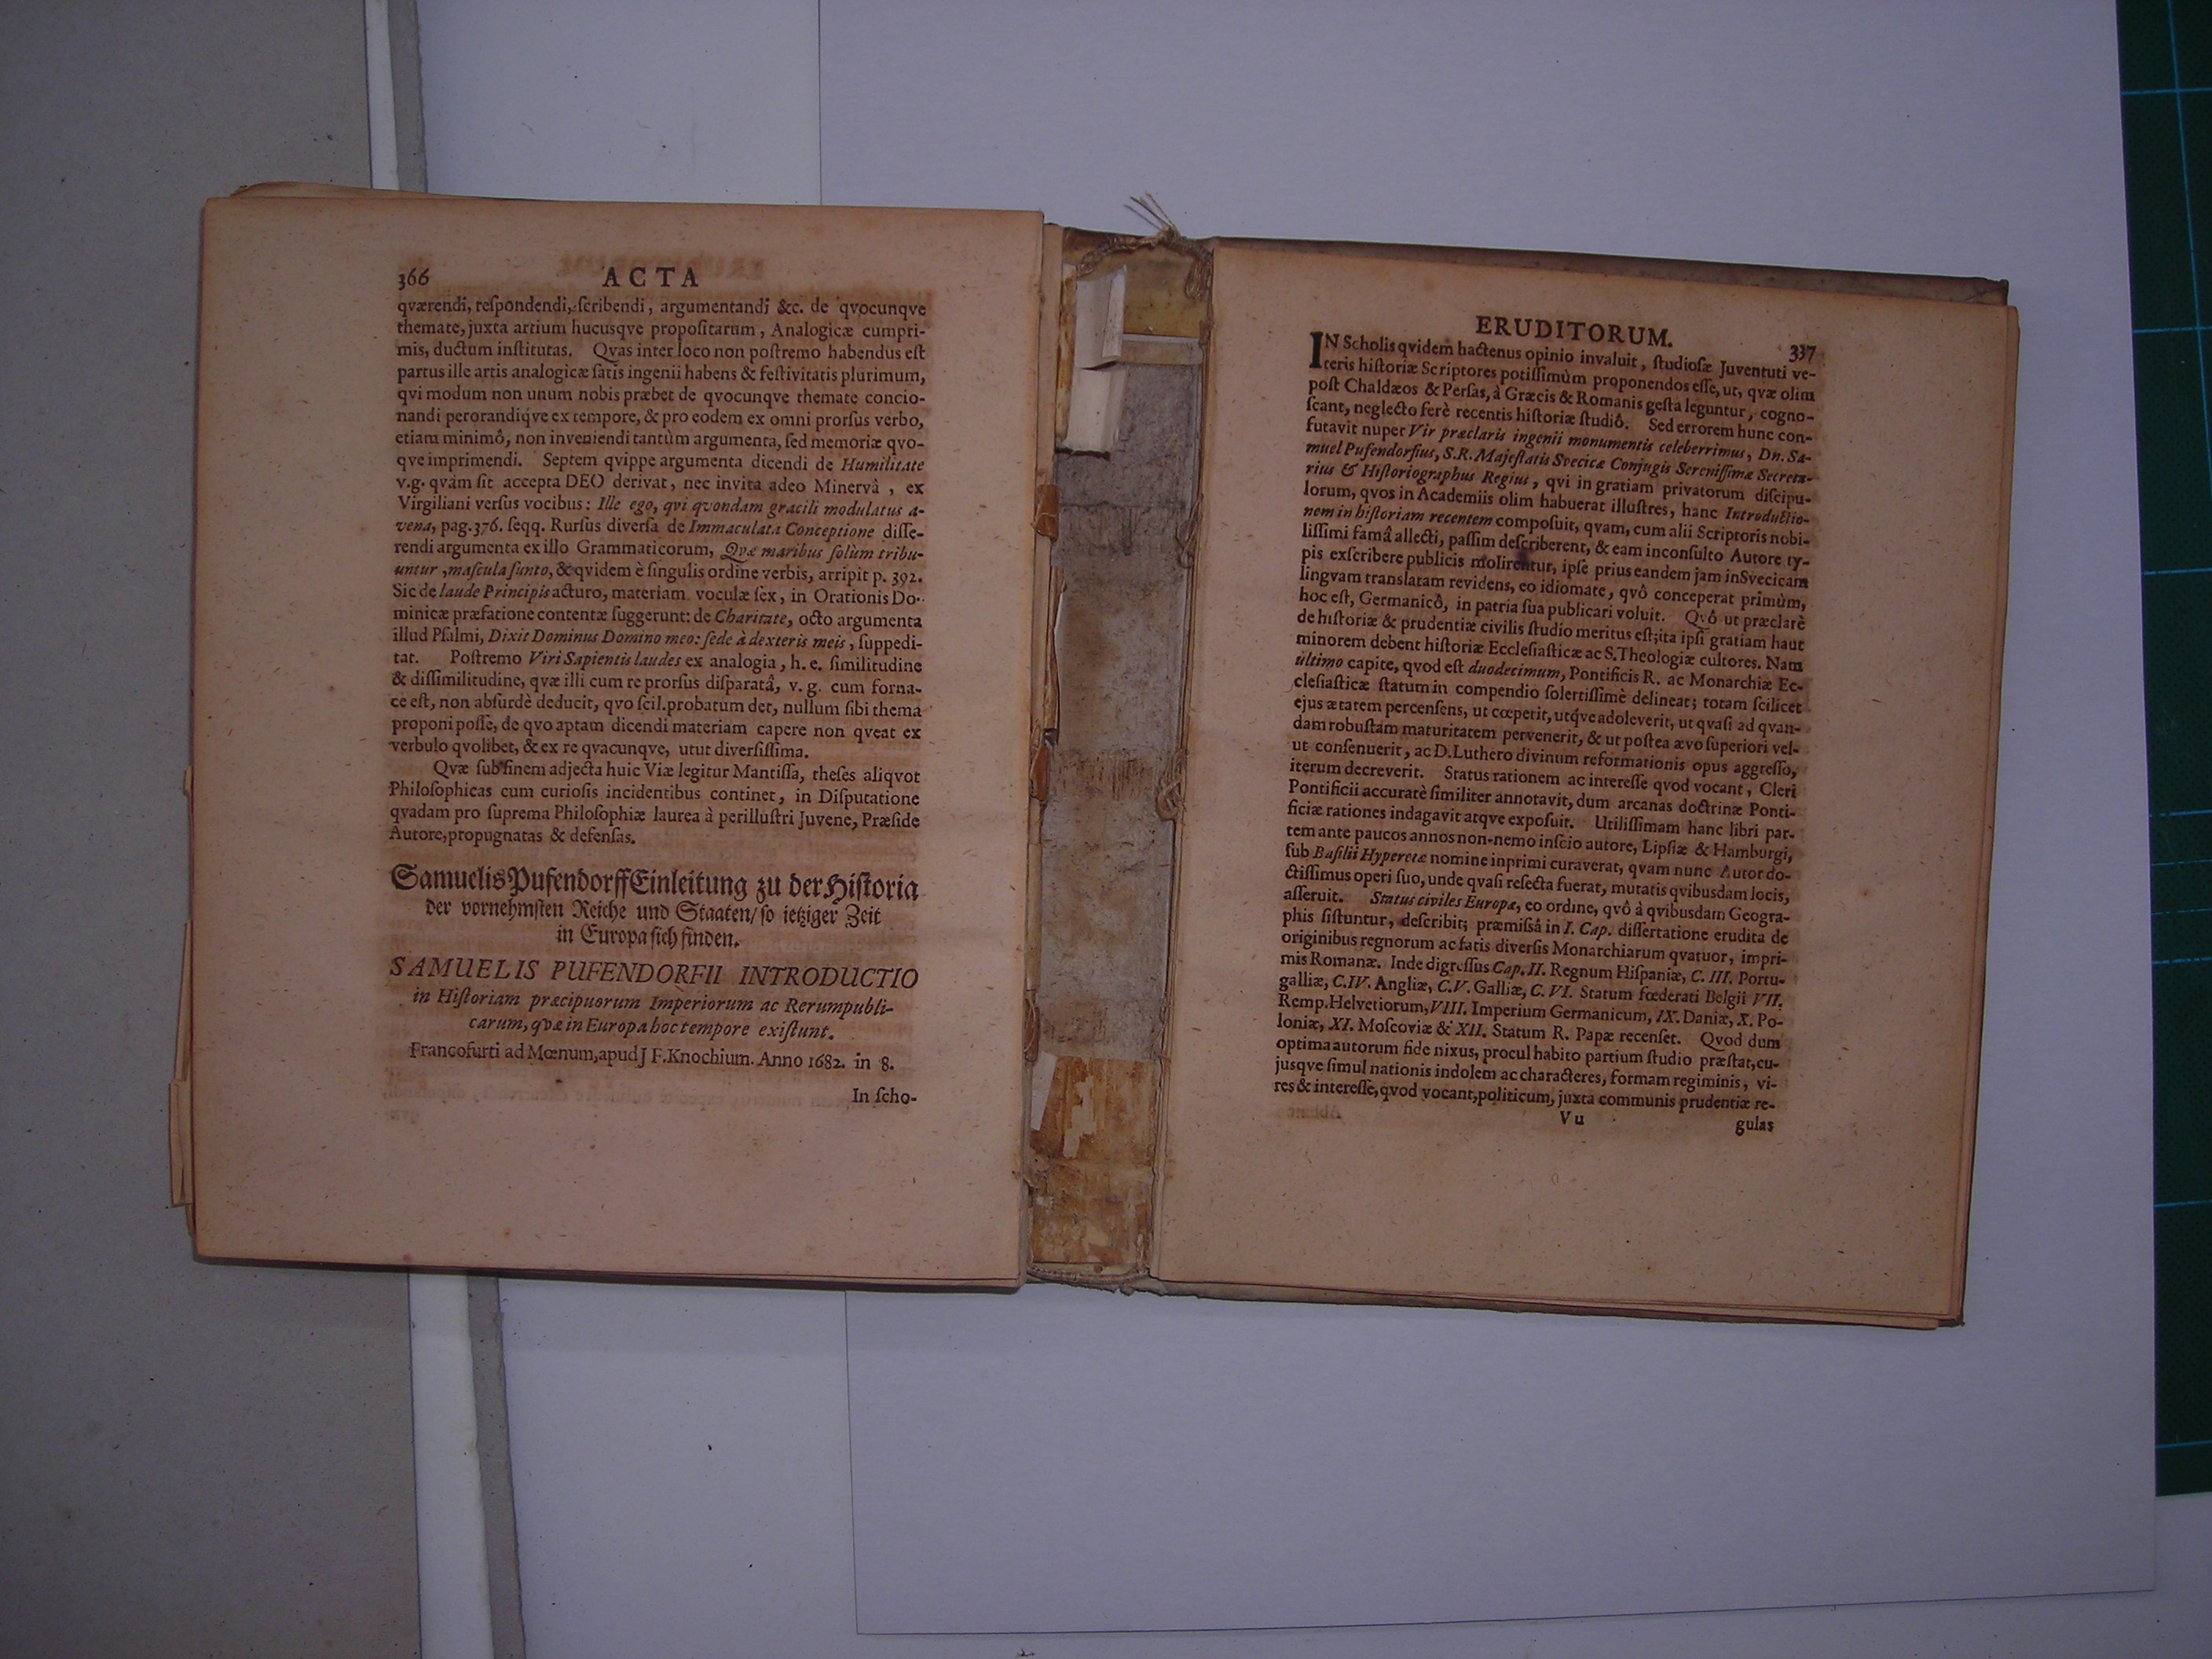 366 ACTA
qværendi, reſpondendi, ſcribendi, argumentandi &c. de qvocunqve
themate, juxta artium hucusqve propoſitarum, Analogicæ cumpri-
mis, ductum inſtitutas. Qvas inter loco non poſtremo habendus eſt
partus ille artis analogicæ ſatis ingenii habens & feſtivitatis plurimum,
qvi modum non unum nobis præbet de qvocunqve themate concio-
nandi perorandiqve ex tempore, & pro eodem ex omni prorſus verbo,
etiam minimô, non inveniendi tantùm argumenta, ſed memoriæ qvo-
qve imprimendi. Septem qvippe argumenta dicendi de Humilitate
v.g. qvàm ſit accepta DEO derivat, nec invita adeo Minervâ, ex
Virgiliani verſus vocibus: Ille ego, qvi qvondam gracili modulatus a-
vena, pag. 376. ſeqq. Rurſus diverſa de Immaculata Conceptione diſſe-
rendi argumenta ex illo Grammaticorum, Qvæ maribus ſolùm tribu-
untur, maſcula ſunto, & qvidem è ſingulis ordine verbis, arripit p. 392.
Sic de laude Principis acturo, materiam voculæ ſex, in Orationis Do-
minicæ præfatione contentæ ſuggerunt: de Charitate, octo argumenta
illud Pſalmi, Dixit Dominus Domino meo: ſede à dexteris meis, ſuppedi-
tat. Poſtremo Viri Sapientis laudes ex analogia, h. e. ſimilitudine
& diſſimilitudine, qvæ illi cum re prorſus diſparatâ, v. g. cum forna-
ce eſt, non abſurdè deducit, qvo ſcil. probatum det, nullum ſibi thema
proponi poſſe, de qvo aptam dicendi materiam capere non qveat ex
verbulo qvolibet, & ex re qvacunqve, utut diverſiſſima.
Qvæ ſub finem adjecta huic Viæ legitur Mantiſſa, theſes aliqvot
Philoſophicas cum curioſis incidentibus continet, in Diſputatione
qvadam pro ſuprema Philoſophiæ laurea à perilluſtri Juvene, Præſide
Autore, propugnatas & defenſas.
Samuelis Pufendorff Einleitung zu der Hiſtoria
der vornehmſten Reiche und Staaten/ ſo ietziger Zeit
in Europa ſich finden.
SAMUELIS PUFENDORFII INTRODUCTIO
in Hiſtoriam præcipuorum Imperiorum ac Rerumpubli-
carum, qvæ in Europa hoc tempore exiſtunt.
Francofurti ad Mœnum, apud J F. Knochium. Anno 1682. in 8.
In ſcho-
ERUDITORUM. 337
IN Scholis qvidem hactenus opinio invaluit, ſtudioſæ Juventuti ve-
teris hiſtoriæ Scriptores potiſſimùm proponendos eſſe, ut, qvæ olim
poſt Chaldæos & Perſas, à Græcis & Romanis geſta leguntur, cogno-
ſcant, neglecto ferè recentis hiſtoriæ ſtudiô. Sed errorem hunc con-
futavit nuper Vir præclaris ingenii monumentis celeberrimus, Dn. Sa-
muel Pufendorfius, S.R. Majeſtatis Svecicæ Conjugis Sereniſſimæ Secreta-
rius & Hiſtoriographus Regius, qvi in gratiam privatorum diſcipu-
lorum, qvos in Academiis olim habuerat illuſtres, hanc Introductio-
nem in hiſtoriam recentem compoſuit, qvam, cum alii Scriptoris nobi-
liſſimi famâ allecti, paſſim deſcriberent, & eam inconſulto Autore ty-
pis exſcribere publicis molirentur, ipſe prius eandem jam in Svecicam
lingvam translatam revidens, eo idiomate, qvô conceperat primùm,
hoc eſt, Germanicô, in patria ſua publicari voluit. Qvô ut præclarè
de hiſtoriæ & prudentiæ civilis ſtudio meritus eſt; ita ipſi gratiam haut
minorem debent hiſtoriæ Eccleſiaſticæ ac S. Theologiæ cultores. Nam
ultimo capite, qvod eſt duodecimum, Pontificis R. ac Monarchiæ Ec-
cleſiaſticæ ſtatum in compendio ſolertiſſimè delineat; totam ſcilicet
ejus ætatem percenſens, ut cœpetit, utqve adoleverit, ut qvaſi ad qvan-
dam robuſtam maturitatem pervenerit, & ut poſtea ævo ſuperiori vel-
ut conſenuerit, ac D. Luthero divinum reformationis opus aggreſſo,
iterum decreverit. Status rationem ac intereſſe qvod vocant, Cleri
Pontificii accuratè ſimiliter annotavit, dum arcanas doctrinæ Ponti-
ficiæ rationes indagavit atqve expoſuit. Utiliſſimam hanc libri par-
tem ante paucos annos non-nemo inſcio autore, Lipſiæ & Hamburgi,
ſub Baſilii Hyperetæ nomine inprimi curaverat, qvam nunc Autor do-
ctiſſimus operi ſuo, unde qvaſi reſecta fuerat, mutatis qvibusdam locis,
aſſeruit. Status civiles Europæ, eo ordine, qvô à qvibusdam Geogra-
phis ſiſtuntur, deſcribit; præmiſsâ in I. Cap. diſſertatione erudita de
originibus regnorum ac fatis diverſis Monarchiarum qvatuor, impri-
mis Romanæ. Inde digreſſus Cap. II. Regnum Hiſpaniæ, C. III. Portu-
galliæ, C. IV. Angliæ, C. V. Galliæ, C. VI. Statum fœderati Belgii VII.
Remp. Helvetiorum, VIII. Imperium Germanicum, IX. Daniæ, X. Po-
loniæ, XI. Moſcoviæ & XII. Statum R. Papæ recenſet. Qvod dum
optima autorum fide nixus, procul habito partium ſtudio præſtat, cu-
jusqve ſimul nationis indolem ac characteres, formam regiminis, vi-
res & intereſſe, qvod vocant, politicum, juxta communis prudentiæ re-
Vu gulas